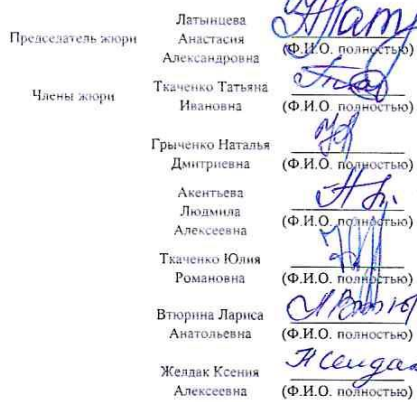 Латынцева
Председатель жюри Анастасия
Александровна (Ф.И.О. полностью)
Ткаченко Татьяна
Члены жюри Ивановна (Ф.И.О. полностью)
Грыченко Наталья
Дмитриевна (Ф.И.О. полностью)
Акентьева
Людмила
Алексеевна (Ф.И.О. полностью)
Ткаченко Юлия
Романовна (Ф.И.О. полностью)
Втюрина Лариса
Анатольевна (Ф.И.О. полностью)
Желдак Ксения
Алексеевна (Ф.И.О. полностью)